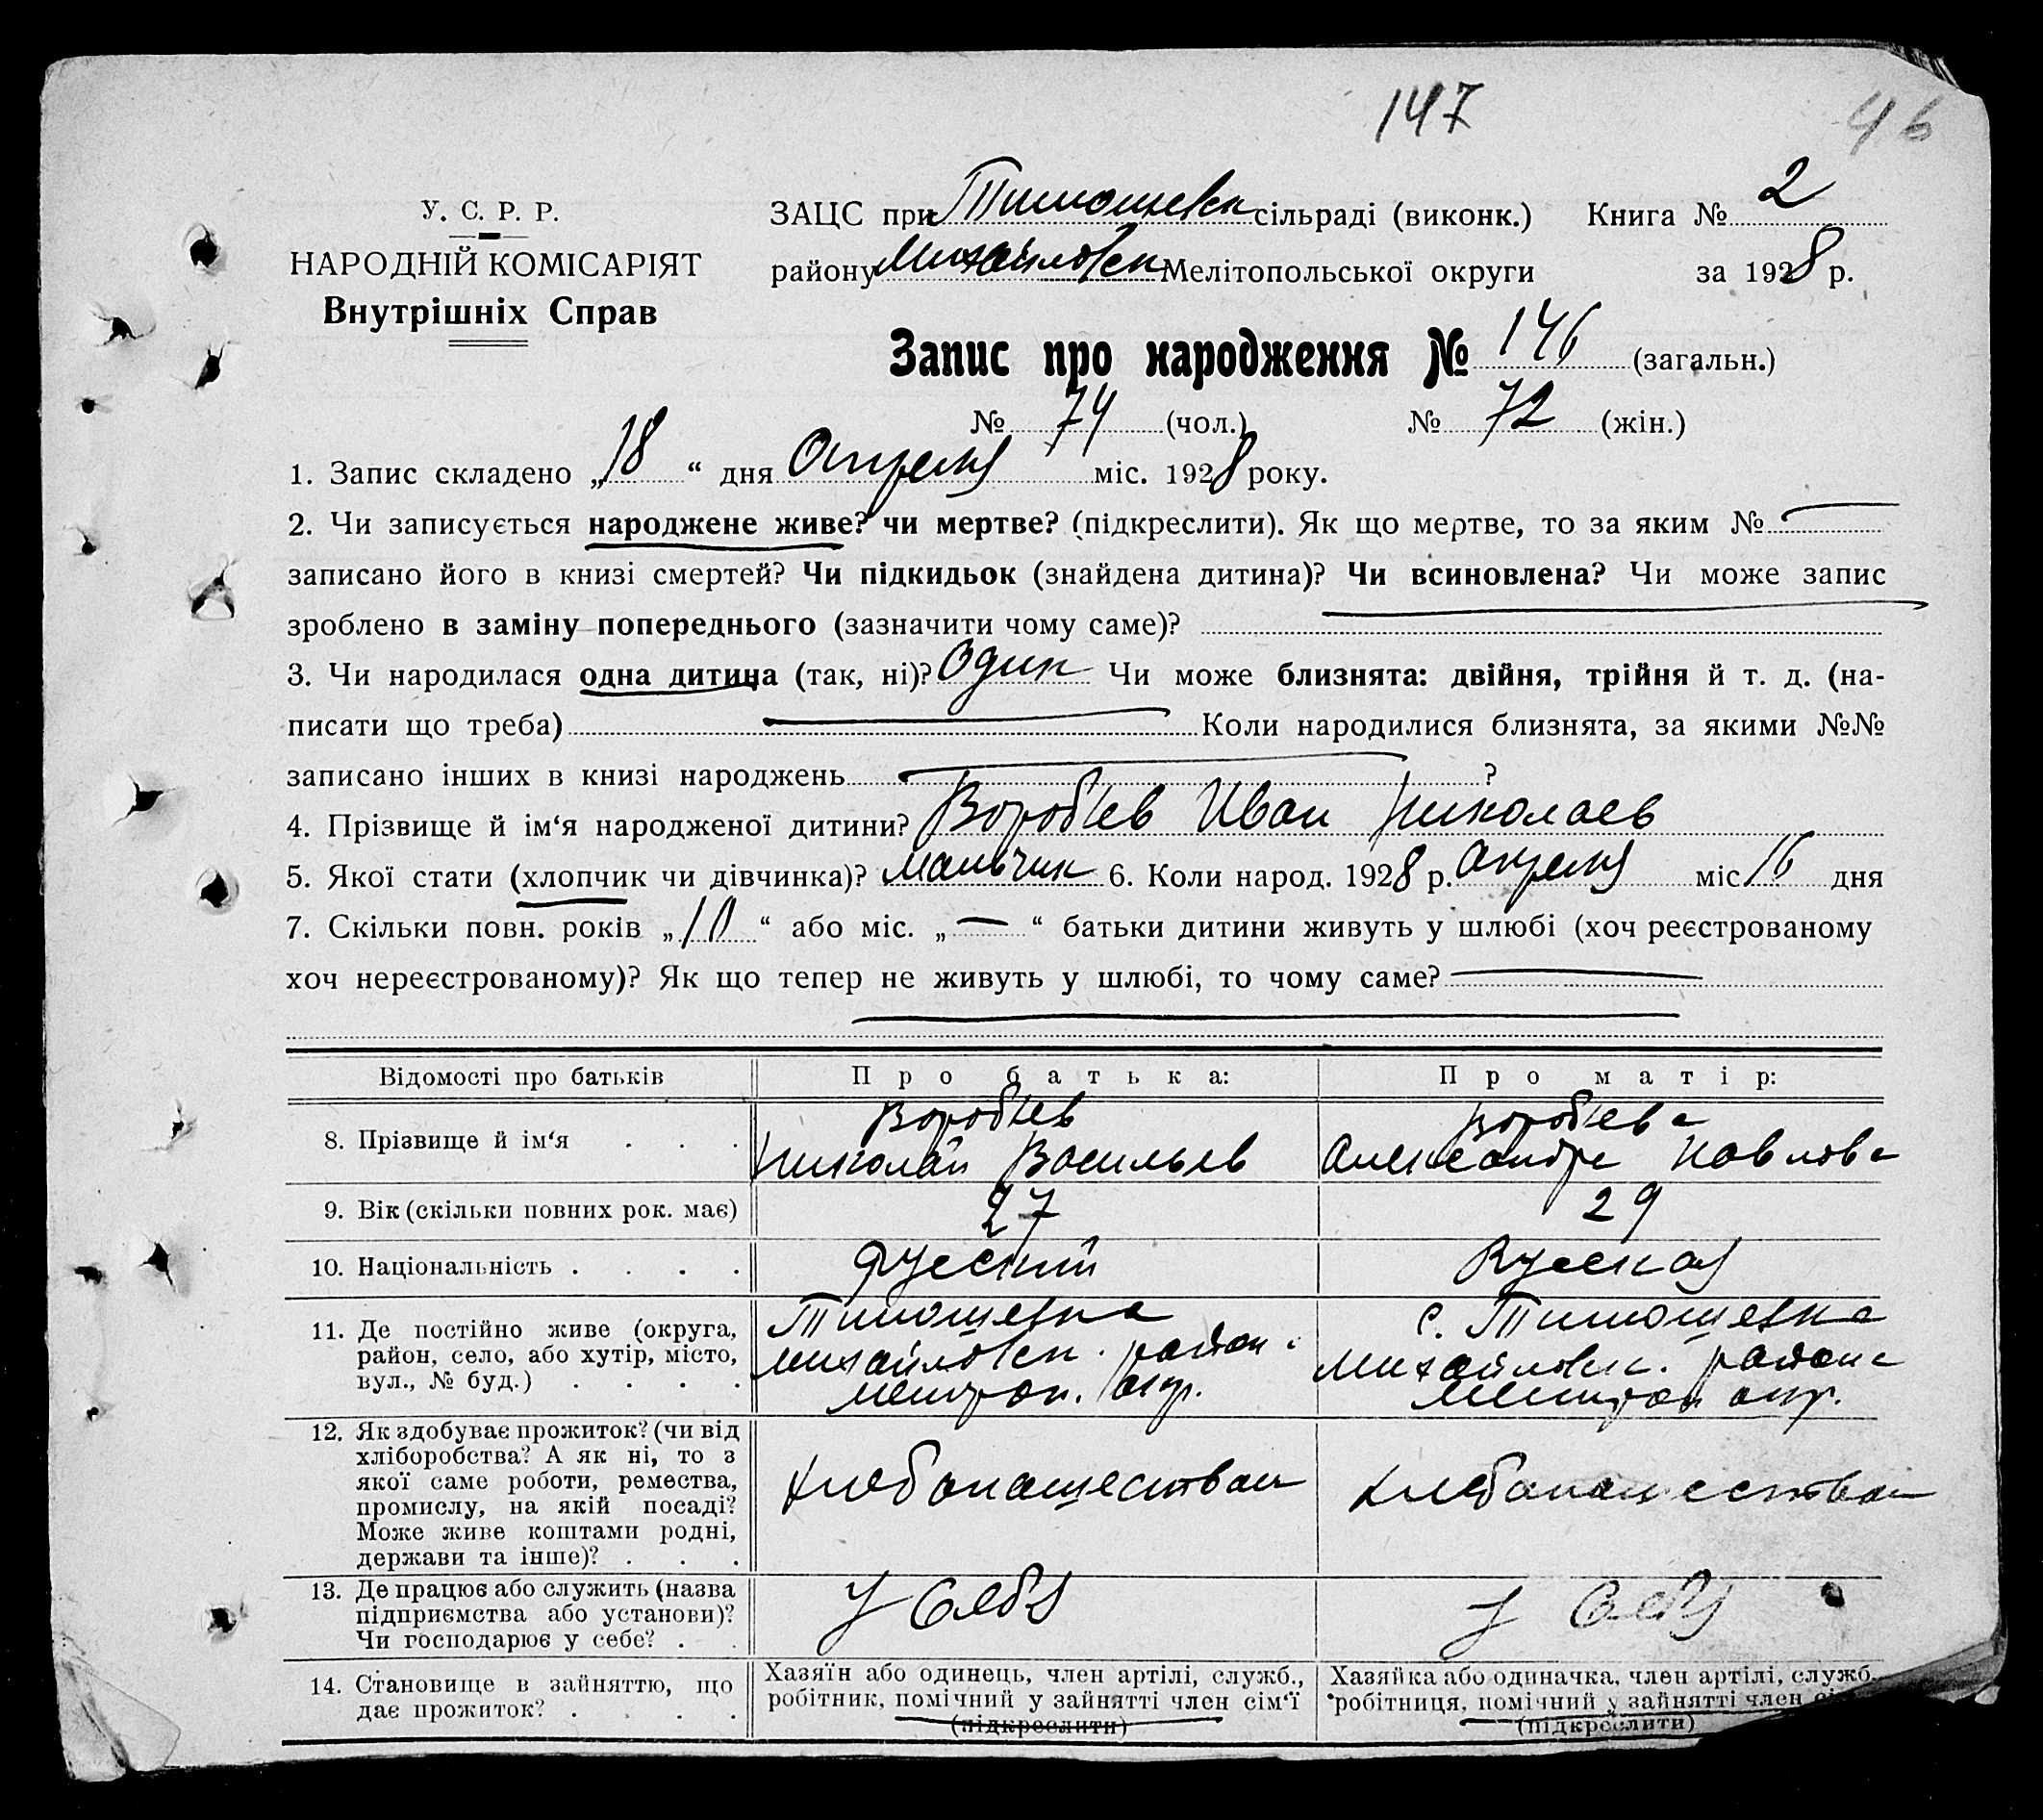 147
46
У. С. Р. Р.
НАРОДНІЙ КОМІСАРІЯТ
Внутрішніх Справ
ЗАЦС при Тимошевск сільраді (виконк.) Книга № 2
району Михайловск Мелітопольської округи за 1928 р.
Запис про народження № 146 (загальн.)
№ 74 (чол.) № 72 (жін.)
1. Запис складено „18“ дня Апреля міс. 1928 року.
2. Чи записується народжене живе? чи мертве? (підкреслити). Як що мертве, то за яким №
записано його в книзі смертей? Чи підкидьок (знайдена дитина)? Чи всиновлена? Чи може запис
зроблено в заміну попереднього (зазначити чому саме)?
3. Чи народилася одна дитина (так, ні)? Один Чи може близнята: двійня, трійня й т. д. (на-
писати що треба) Коли народилися близнята, за якими №№
записано інших в книзі народжень ?
4. Прізвище й ім‘я народженої дитини? Воробьев Иван Николаев
5. Якої стати (хлопчик чи дівчинка)? мальчик 6. Коли народ. 1928 р. апреля міс 16 дня
7. Скільки повн. років „10“ або міс. „—“ батьки дитини живуть у шлюбі (хоч реєстрованому
хоч нереєстрованому)? Як що тепер не живуть у шлюбі, то чому саме?
Відомості про батьків Про батька: Про матір:
8. Прізвище й ім‘я . . . Воробьев Николай Васильев Воробьева Александра Павлова
9. Вік (скільки повних рок. має) 27 29
10. Національність . . . . Русский Русская
11. Де постійно живе (округа,
район, село, або хутір, місто,
вул., № буд.) . . . .
Тимошевка
Михайловск. района
Мелитоп. окр.
с. Тимошевка
Михайловск. района
Мелитоп окр.
12. Як здобуває прожиток? (чи від
хліборобства? А як ні, то з
якої саме роботи, ремества,
промислу, на якій посаді?
Може живе коштами родні,
держави та інше)? . . .
Хлебопашеством
Хлебопашеством
13. Де працює або служить (назва
підприємства або установи)?
Чи господарює у себе? . .
У Себя
У Себя
14. Становище в зайняттю, що
дає прожиток? . . . .
Хазяїн або одинець, член артілі, служб.,
робітник, помічний у зайнятті член сім‘ї
(підкреслити)
Хазяйка або одиначка, член артілі, служб.
робітниця, помічний у зайнятті член
(підкреслити)